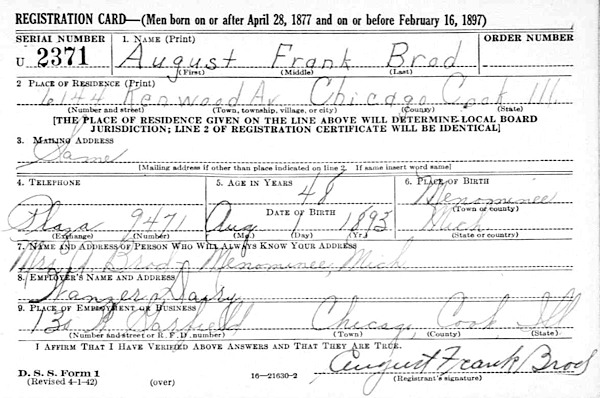 REGISTRATION CARD—(Men born on or after April 28, 1877 and on or before February 16, 1897)
SERIAL NUMBER 1. NAME (Print) ORDER NUMBER
U 2371 August Frank Brod
(First) (Middle) (Last)
2. PLACE OF RESIDENCE (Print)
6144 Kenwood Av. Chicago Cook Ill
(Number and street) (Town, township, village, or city) (County) (State)
[THE PLACE OF RESIDENCE GIVEN ON THE LINE ABOVE WILL DETERMINE LOCAL BOARD
JURISDICTION; LINE 2 OF REGISTRATION CERTIFICATE WILL BE IDENTICAL]
3. MAILING ADDRESS
Same
[Mailing address if other than place indicated on line 2. If same insert word same]
4. TELEPHONE 5. AGE IN YEARS 6. PLACE OF BIRTH
48 Menominee
DATE OF BIRTH (Town or county)
Plaza 9471 Aug 1893 Mich
(Exchange) (Number) (Mo.) (Day) (Yr.) (State or country)
7. NAME AND ADDRESS OF PERSON WHO WILL ALWAYS KNOW YOUR ADDRESS
Mrs Brod - Menominee, Mich
8. EMPLOYER'S NAME AND ADDRESS
Wanzer Dairy
9. PLACE OF EMPLOYMENT OR BUSINESS
Garfield Chicago, Cook, Ill
(Number and street or R. F. D. number) (Town) (County) (State)
I AFFIRM THAT I HAVE VERIFIED ABOVE ANSWERS AND THAT THEY ARE TRUE.
August Frank Brod
D. S. S. Form 1 (Registrant's signature)
(Revised 4-1-42) (over) 16—21630-2